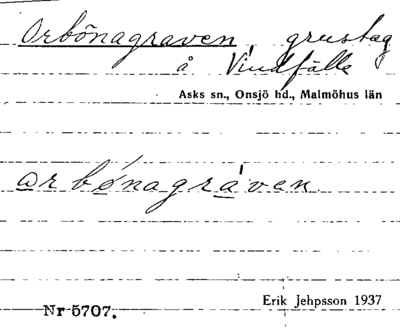 Orbönagraven, grustag
å Vindfälle
Asks sn., Onsjö hd., Malmöhus län
ar bónagrá'ven
Erik Jehpsson 1937
Nr 5707.